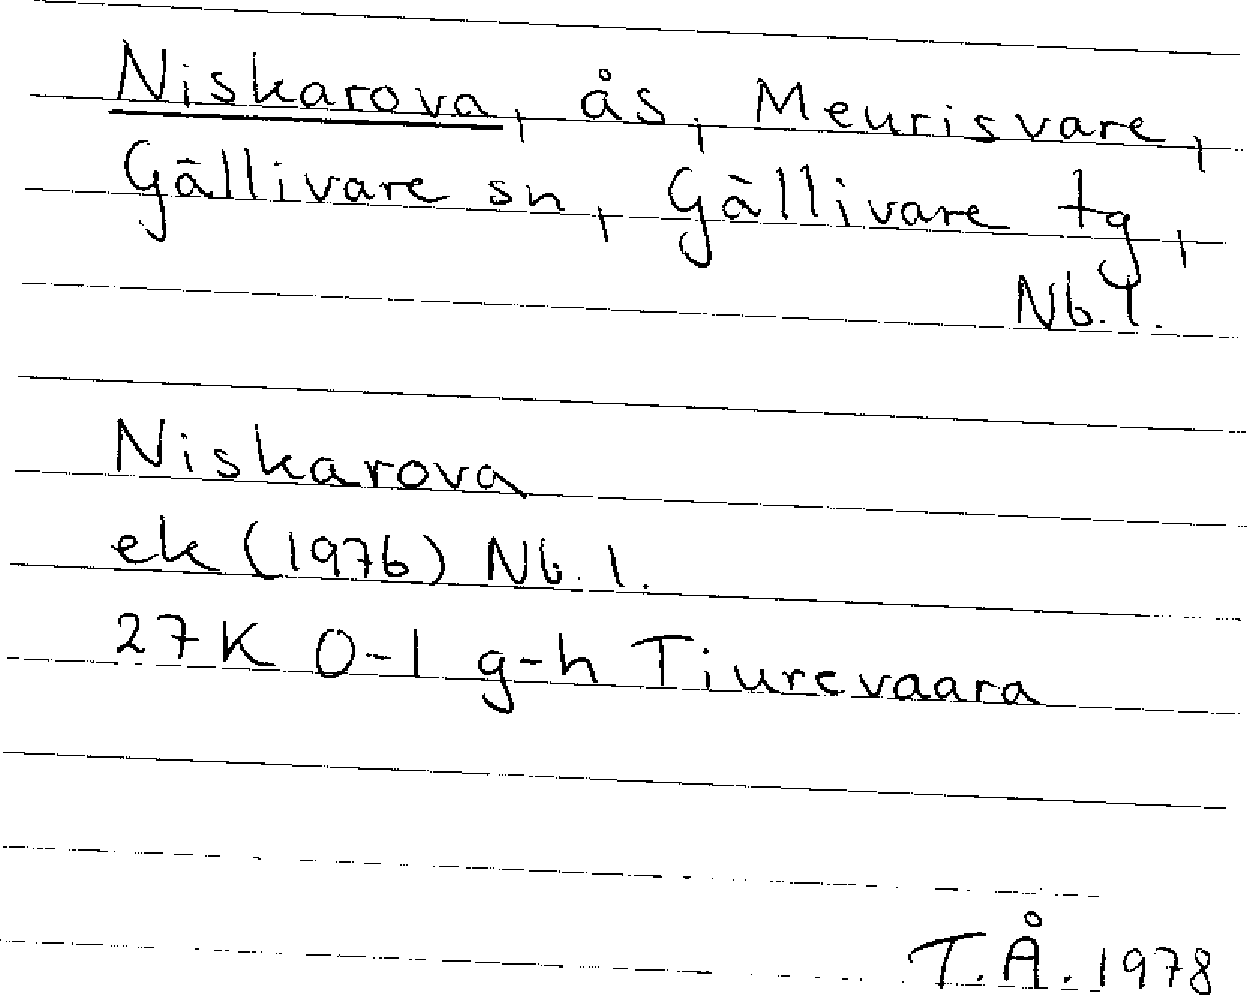 Niskarova, ås, Meurisvare,
Gällivare sn, Gällivare tg,
Nb. l.
Niskarova
ek (1976) Nb. l.
27K 0-1 g-h Tiurevaara
T.Å. 1978